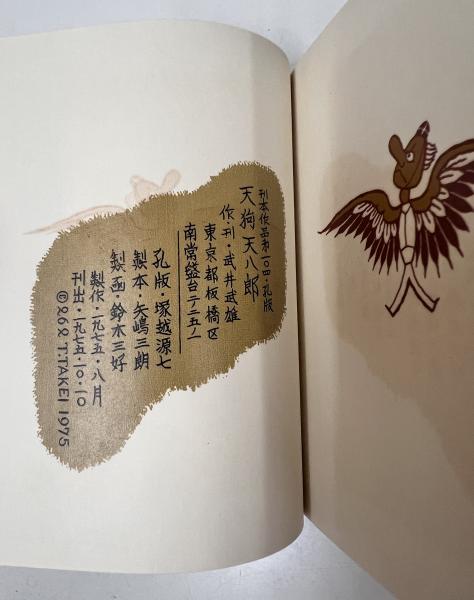 刊本作品第一〇四・孔版
天狗天八郎
作・刊・武井武雄
東京都板橋区
南常盤台二ノ二五ノ一
孔版・塚越源七
製本・矢嶋三朗
製函・鈴木三好
製作・一九七五・八月
刊出・一九七五・一〇・一〇
©262 T.TAKEI 1975